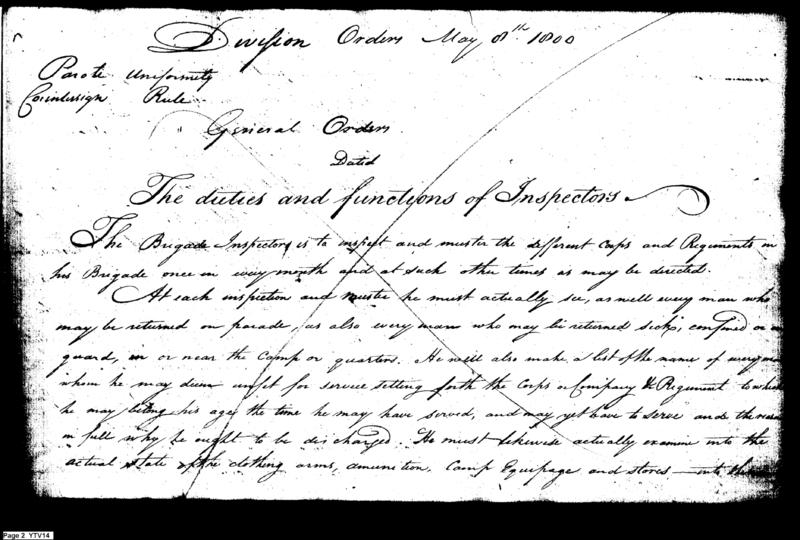 Division Orders May 8th 1800
Parole Uniformity
Countersign Rule
General Orders
Dated
The duties and functions of Inspectors
The Brigade Inspectors is to inspect and muster the different Corps and Regiments in
his Brigade once in every month and at such other times as may be directed.
At each inspection and muster he must actually see, as well every man who
may be returned on parade, as also every man who may be returned sick, confined or on
guard, in or near the Camp or quarters. He will also make a list of the names of every man
whom he may deem unfit for service setting forth the Corps or Company & Regiment to which
he may belong his age, the time he may have served, and may yet have to serve and the reason
in full why he ought to be discharged. He must likewise actually examine into the
actual state of the clothing arms, amunition, Camp Equipage and stores into the
Page 2 YTV14